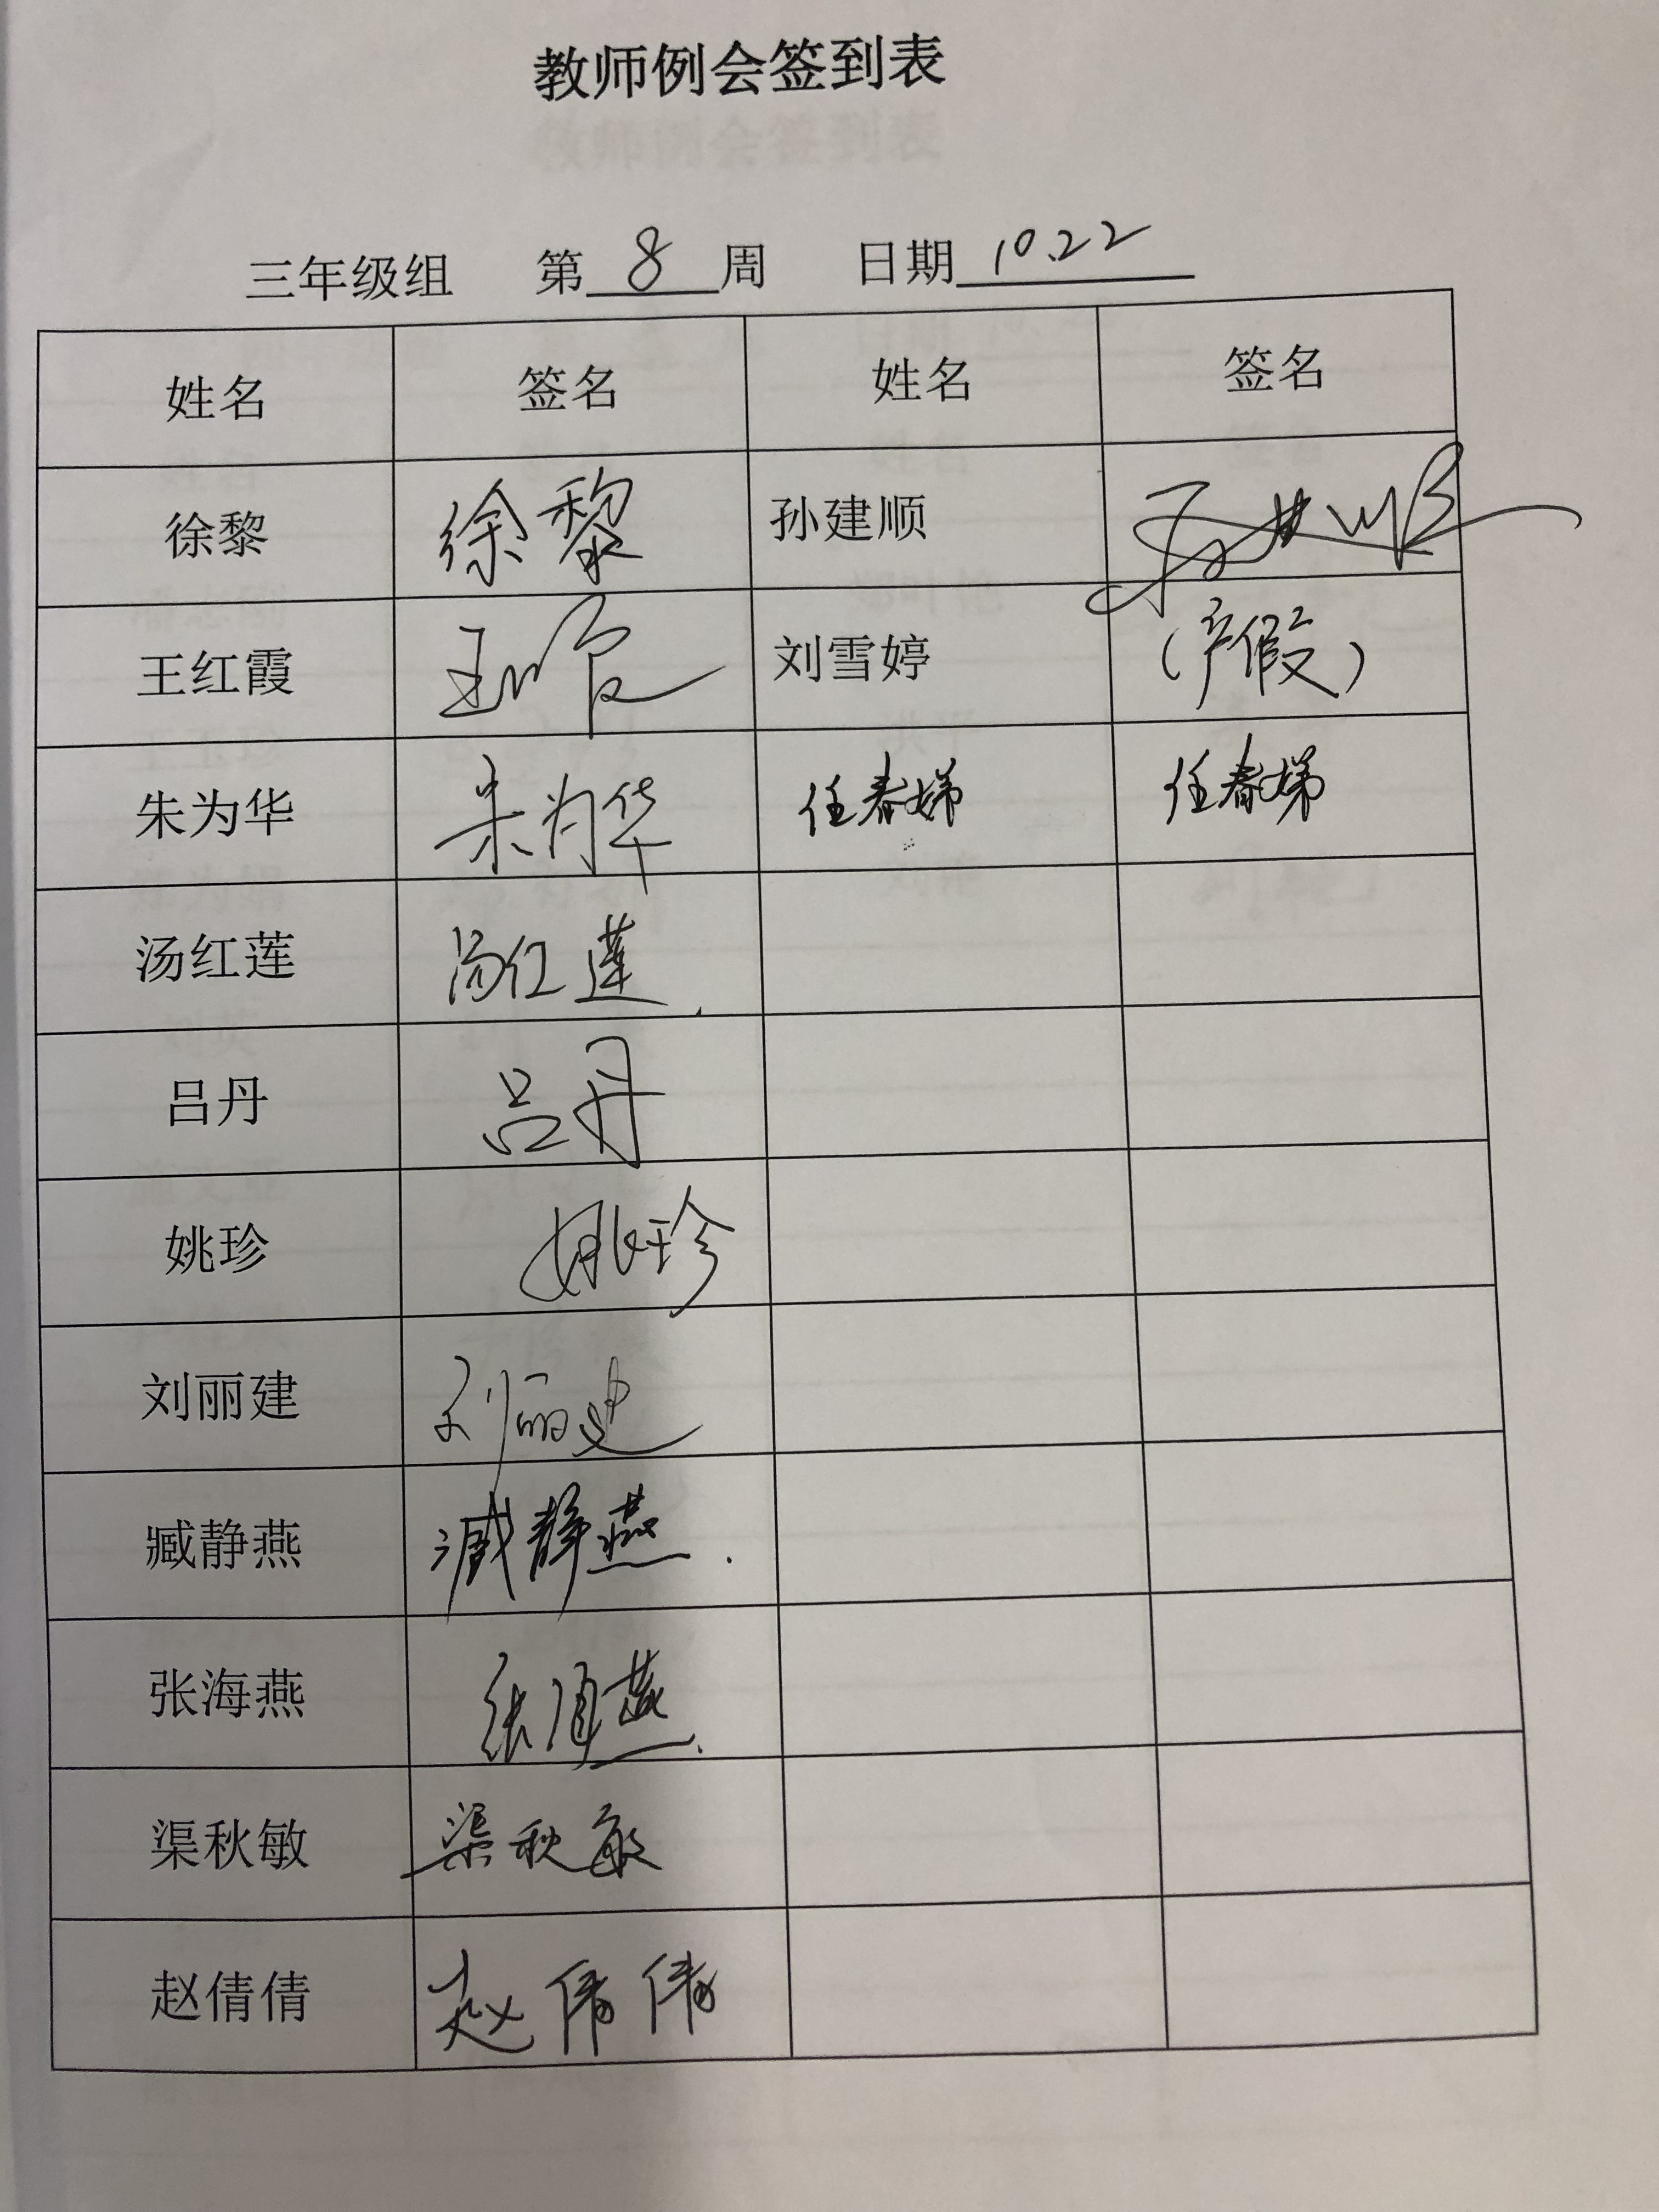 教师例会签到表
三年级组 第 8 周 日期 10.22
姓名 签名 姓名 签名
徐黎 徐黎 孙建顺 孙建顺
王红霞 王红霞 刘雪婷 (产假)
朱为华 朱为华 任春娣 任春娣
汤红莲 汤红莲
吕丹 吕丹
姚珍 姚珍
刘丽建 刘丽建
臧静燕 臧静燕
张海燕 张海燕
渠秋敏 渠秋敏
赵倩倩 赵倩倩